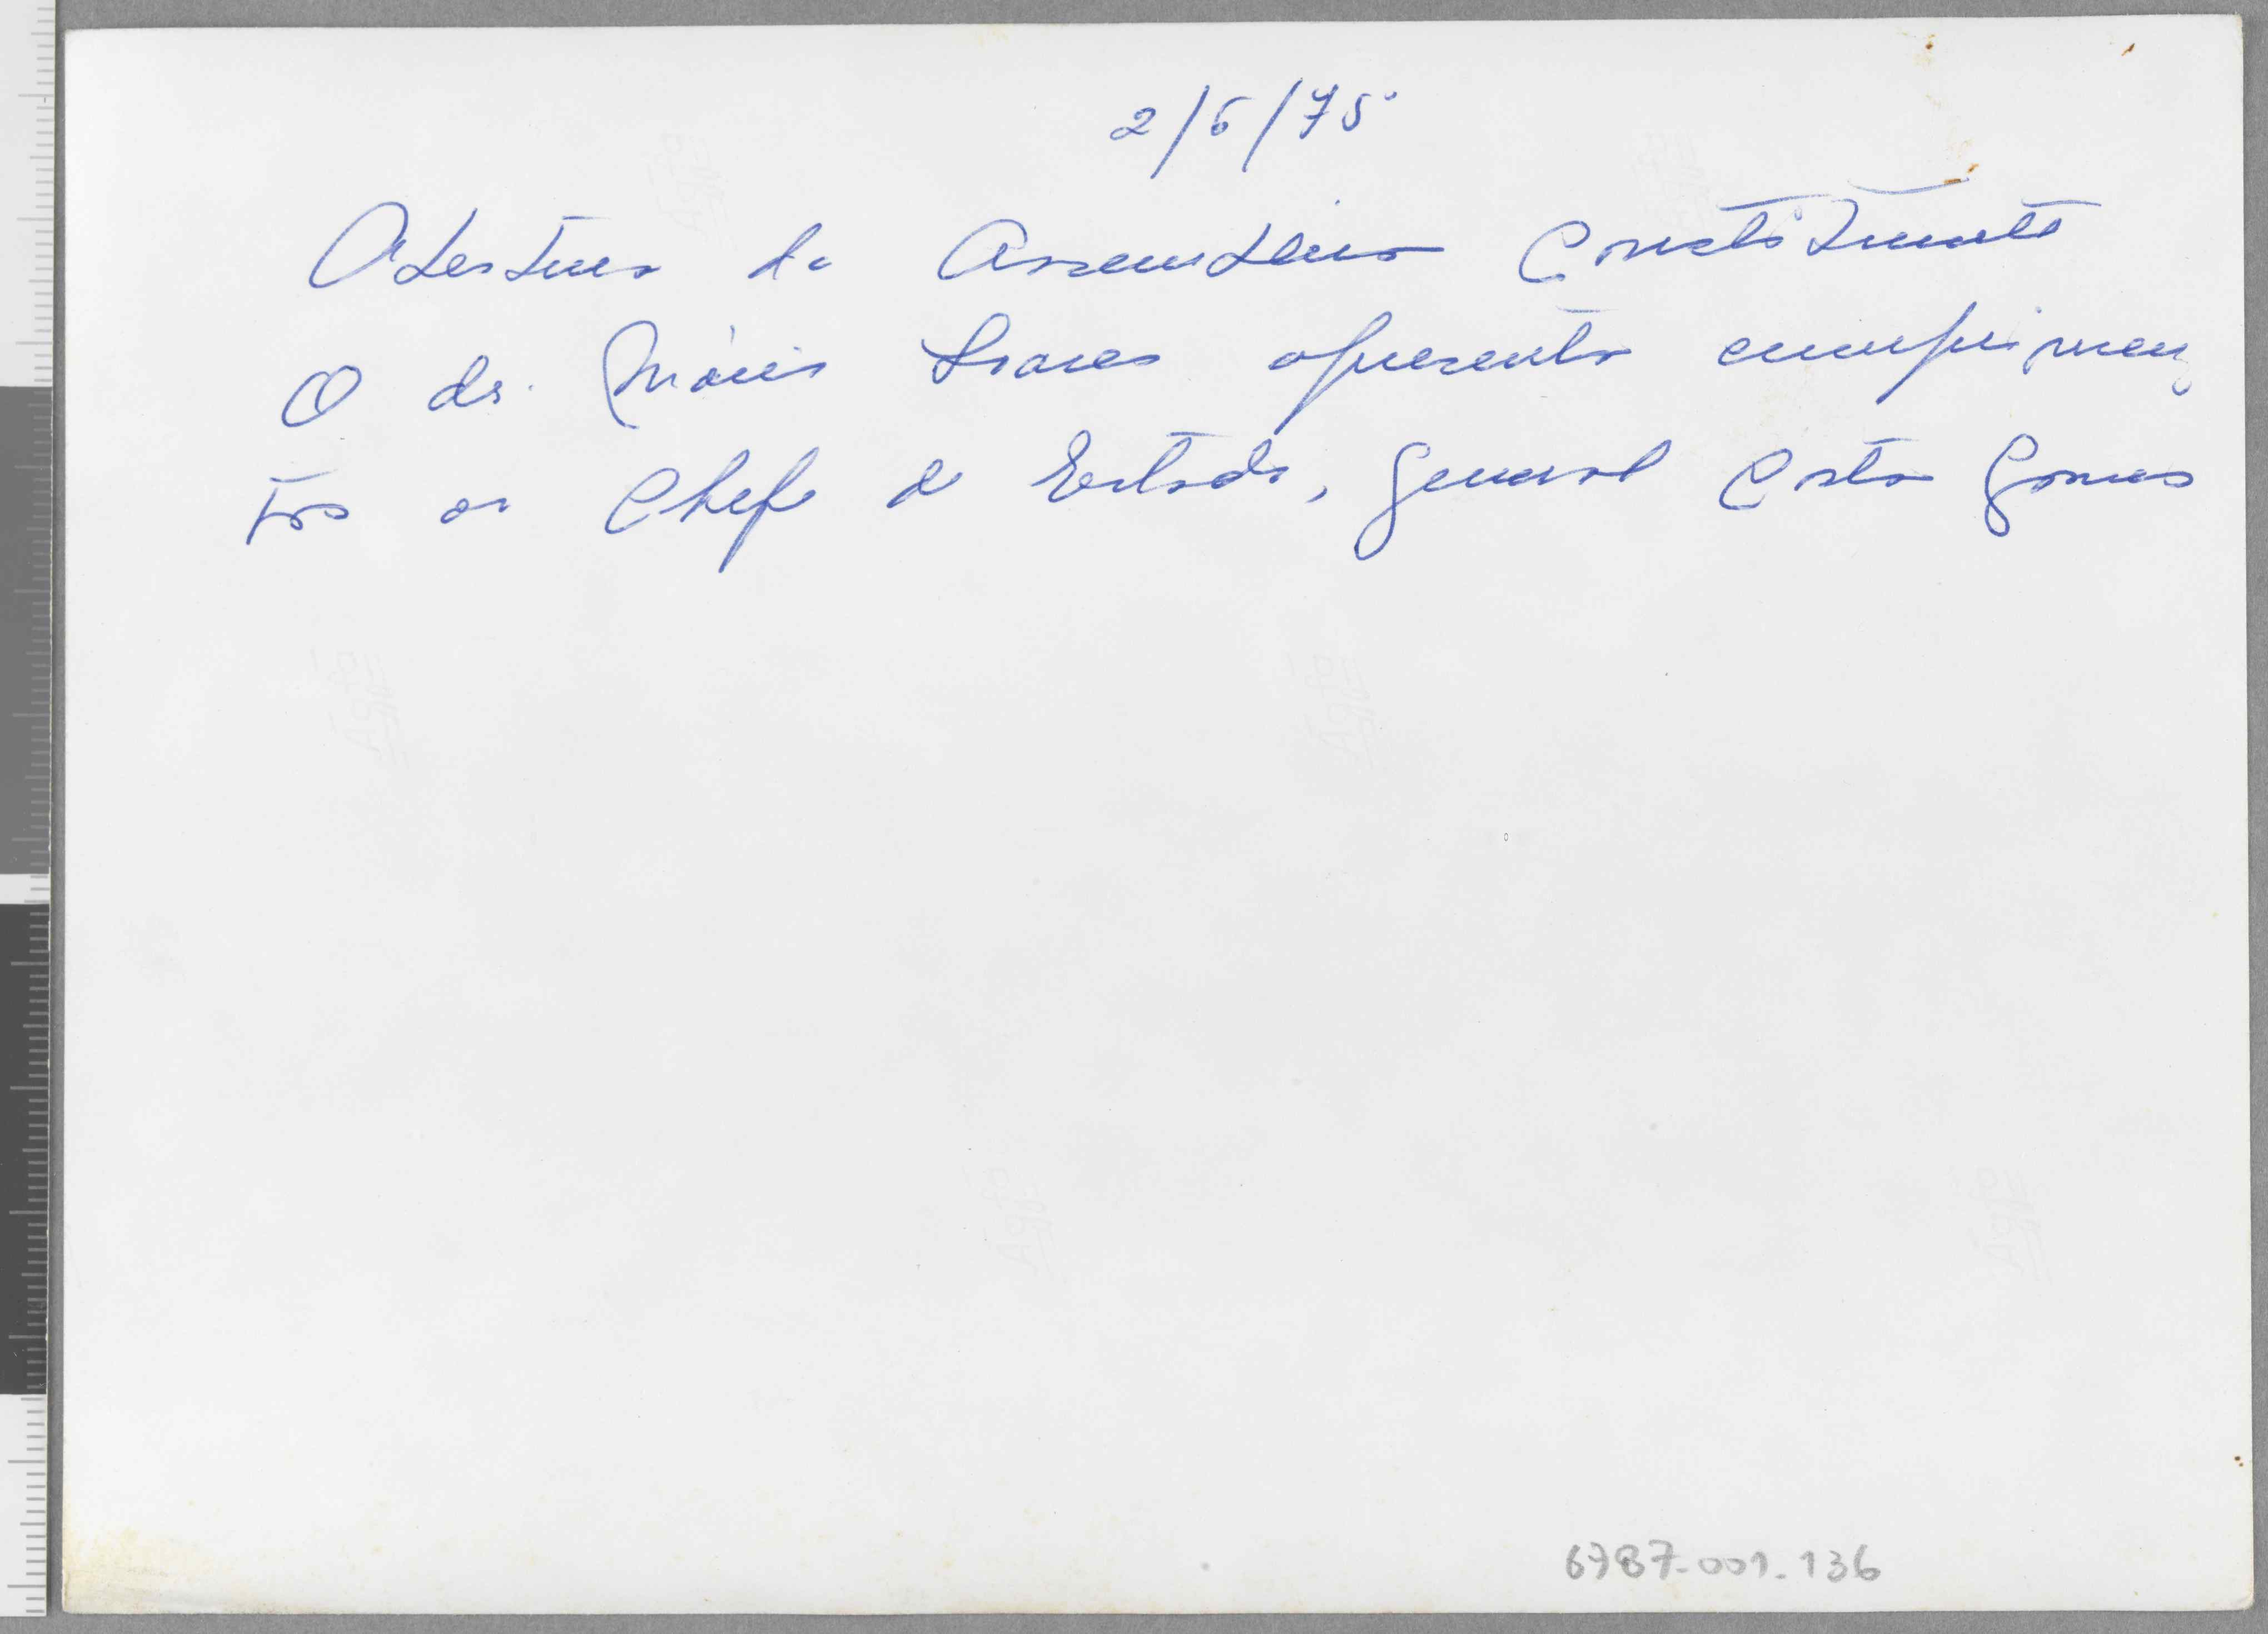 2/6/75
Abertura da Assembleia Constituinte
O dr. Mário Soares apresenta cumprimen
tos ao Chefe do Estado, General Costa Gomes
Agfa
Agfa
Agfa
Agfa
Agfa
6787-001-136